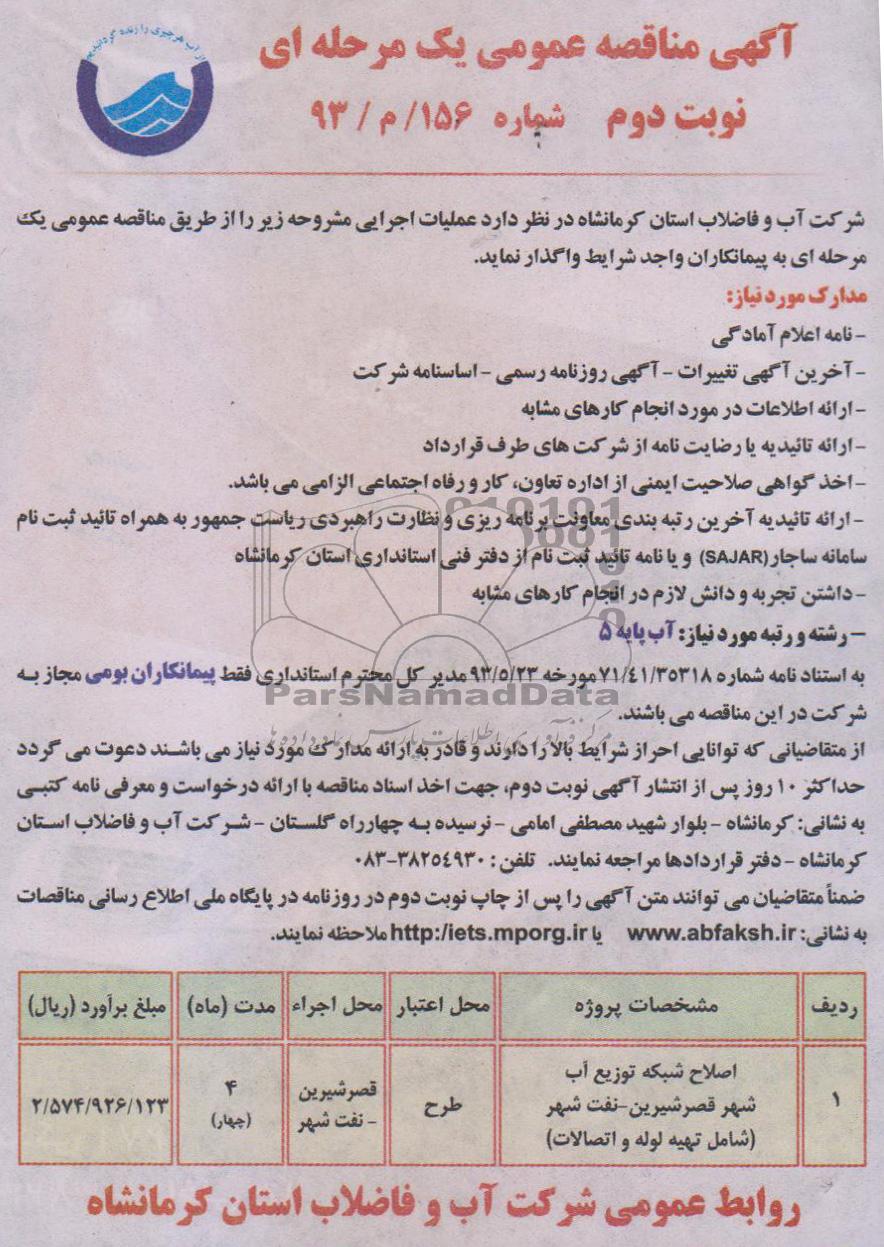 از آب هر چیزی را زنده گردانیدیم
آگهی مناقصه عمومی یک مرحله ای
نوبت دوم شماره ۱۵۶/ م / ۹۳
شرکت آب و فاضلاب استان کرمانشاه در نظر دارد عملیات اجرایی مشروحه زیر را از طریق مناقصه عمومی یک
مرحله ای به پیمانکاران واجد شرایط واگذار نماید.
مدارک مورد نیاز:
- نامه اعلام آمادگی
- آخرین آگهی تغییرات - آگهی روزنامه رسمی - اساسنامه شرکت
- ارائه اطلاعات در مورد انجام کارهای مشابه
- ارائه تائیدیه یا رضایت نامه از شرکت های طرف قرارداد
- اخذ گواهی صلاحیت ایمنی از اداره تعاون، کار و رفاه اجتماعی الزامی می باشد.
- ارائه تائیدیه آخرین رتبه بندی معاونت برنامه ریزی و نظارت راهبردی ریاست جمهور به همراه تائید ثبت نام
سامانه ساجار (SAJAR) و یا نامه تائید ثبت نام از دفتر فنی استانداری استان کرمانشاه
- داشتن تجربه و دانش لازم در انجام کارهای مشابه
- رشته و رتبه مورد نیاز: آب پایه ۵
به استناد نامه شماره ۷۱/٤۱/۳۵۳۱۸ مورخه ۹۳/۵/۲۳ مدیر کل محترم استانداری فقط پیمانکاران بومی مجاز به
ParsNamadData
شرکت در این مناقصه می باشند.
مرکز فرآوری اطلاعات پارس نماد داده ها
از متقاضیانی که توانایی احراز شرایط بالا را دارند و قادر به ارائه مدارک مورد نیاز می باشند دعوت می گردد
حداکثر ۱۰ روز پس از انتشار آگهی نوبت دوم، جهت اخذ اسناد مناقصه با ارائه درخواست و معرفی نامه کتبی
به نشانی: کرمانشاه - بلوار شهید مصطفی امامی - نرسیده به چهارراه گلستان - شرکت آب و فاضلاب استان
کرمانشاه - دفتر قراردادها مراجعه نمایند. تلفن : ۳۸۲۵٤۹۳۰-۰۸۳
ضمناً متقاضیان می توانند متن آگهی را پس از چاپ نوبت دوم در روزنامه در پایگاه ملی اطلاع رسانی مناقصات
به نشانی: www.abfaksh.ir یا http:/iets.mporg.ir ملاحظه نمایند.
ردیف مشخصات پروژه محل اعتبار محل اجراء مدت (ماه) مبلغ برآورد (ریال)
۱ اصلاح شبکه توزیع آب
شهر قصرشیرین-نفت شهر
(شامل تهیه لوله و اتصالات)
طرح
قصرشیرین
- نفت شهر
۴
(چهار)
۲/۵۷۴/۹۲۶/۱۲۳
روابط عمومی شرکت آب و فاضلاب استان کرمانشاه